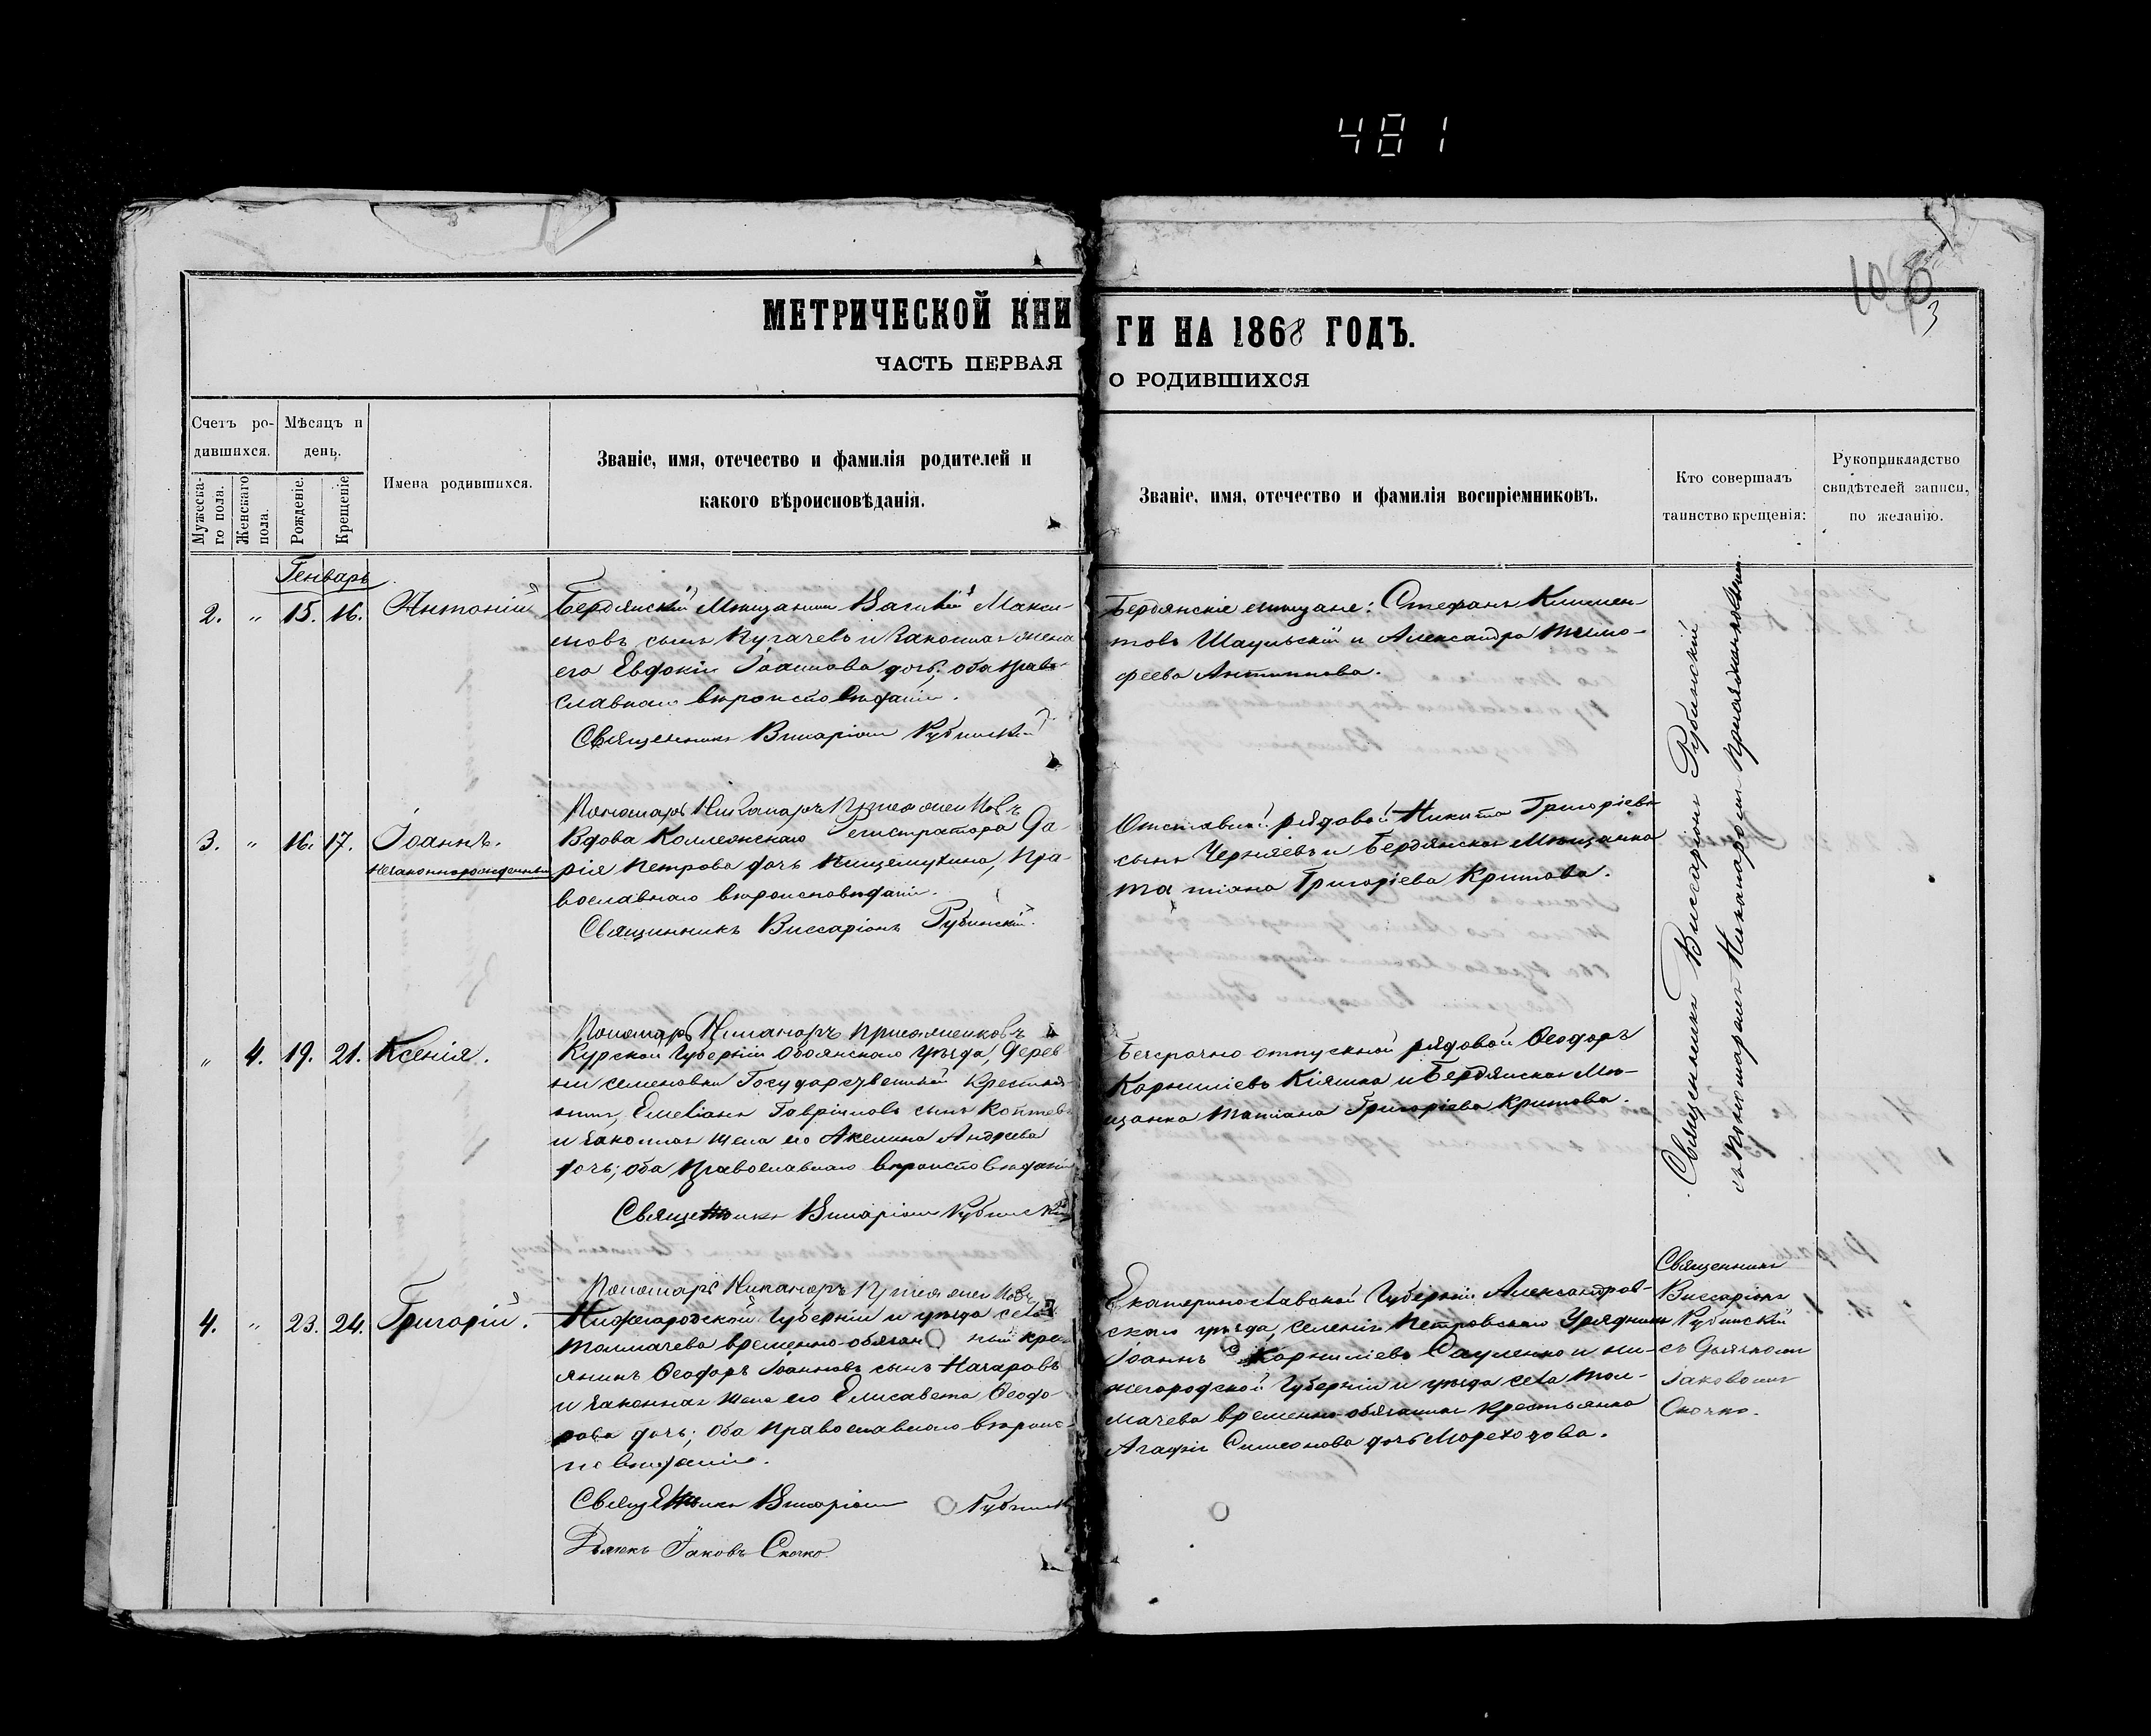 481
106
3
МЕТРИЧЕСКОЙ КНИГИ НА 1868 ГОДЪ.
ЧАСТЬ ПЕРВАЯ О РОДИВШИХСЯ
Счетъ ро-
дившихся.
Мужеска-
го пола.
Женскаго
пола.
Мѣсяцъ и
день.
Рожденіе.
Крещеніе.
Имена родившихся.
Званіе, имя, отечество и фамилія родителей и
какого вѣроисповѣданія.
Званіе, имя, отечество и фамилія воспріемниковъ.
Кто совершалъ
таинство крещенія:
Рукоприкладство
свидѣтелей записи,
по желанію.
Генварь
2. „ 15. 16. Антоній
Бердянскій Мѣщанинъ Василій Макси-
мовъ сынъ Пугачевъ и законная жена
его Евдокія Іоаннова дочь; оба право-
славнаго вѣроисповѣданія.
Священникъ Виссаріонъ Рубинскій
Пономарь Никаноръ
Бердянскіе мѣщане: Стефанъ Климен-
товъ и Александра Тимо-
феева Антипова.
3. „ 16. 17. Іоаннъ.
Незаконнорожденный
Вдова Коллежскаго Регистратора Да-
рія Петрова дочь Пищемухина, Пра-
вославнаго вѣроисповѣданія.
Священникъ Виссаріонъ Рубинскій.
Пономарь Никаноръ
Отставной рядовой Никита Григорьевъ
сынъ Черняевъ и Бердянская Мѣщанка
Татіана Григоріева Критова.
„ 4. 19. 21. Ксенія.
Курской Губерніи Обоянскаго уѣзда, Дерев-
ни Семеновки Государственный Крестья-
нинъ, Емеліанъ Гавріиловъ сынъ Коптевъ
и законная жена его Акелина Андреева
дочь; оба Православнаго вѣроисповѣданія
Священникъ Виссаріонъ Рубинскій
Пономарь Никаноръ
Безсрочно отпускной рядовой Ѳеодоръ
Корниліевъ Кіяшка и Бердянская Мѣ-
щанка Татіана Григоріева Критова.
Священникъ Виссаріонъ Рубинскій
съ Пономаремъ Никаноромъ
4. „ 23. 24. Григорій.
Нижегородской Губерніи и уѣзда села
Толмачева временно-обязанный кре-
янинъ Ѳеодоръ Іоанновъ сынъ Назаровъ
и законная жена его Елисавета Ѳеодо-
рова дочь; оба Православнаго вѣроис-
повѣданія.
Священникъ Виссаріонъ Рубинскій
Дьякъ Іаковъ Скочко.
Екатеринославской Губерніи Александров-
скаго уѣзда, селенія Петровскаго Урядникъ
Іоаннъ Корниліевъ Сауленко и ни-
жегородской Губерніи и уѣзда села Тол-
мачева временно-обязанная Крестьянка
Агафія Симеонова дочь Мореходова.
Священникъ
Виссаріонъ
Рубинскій
съ Дьячкомъ
Іаковомъ
Скочко.